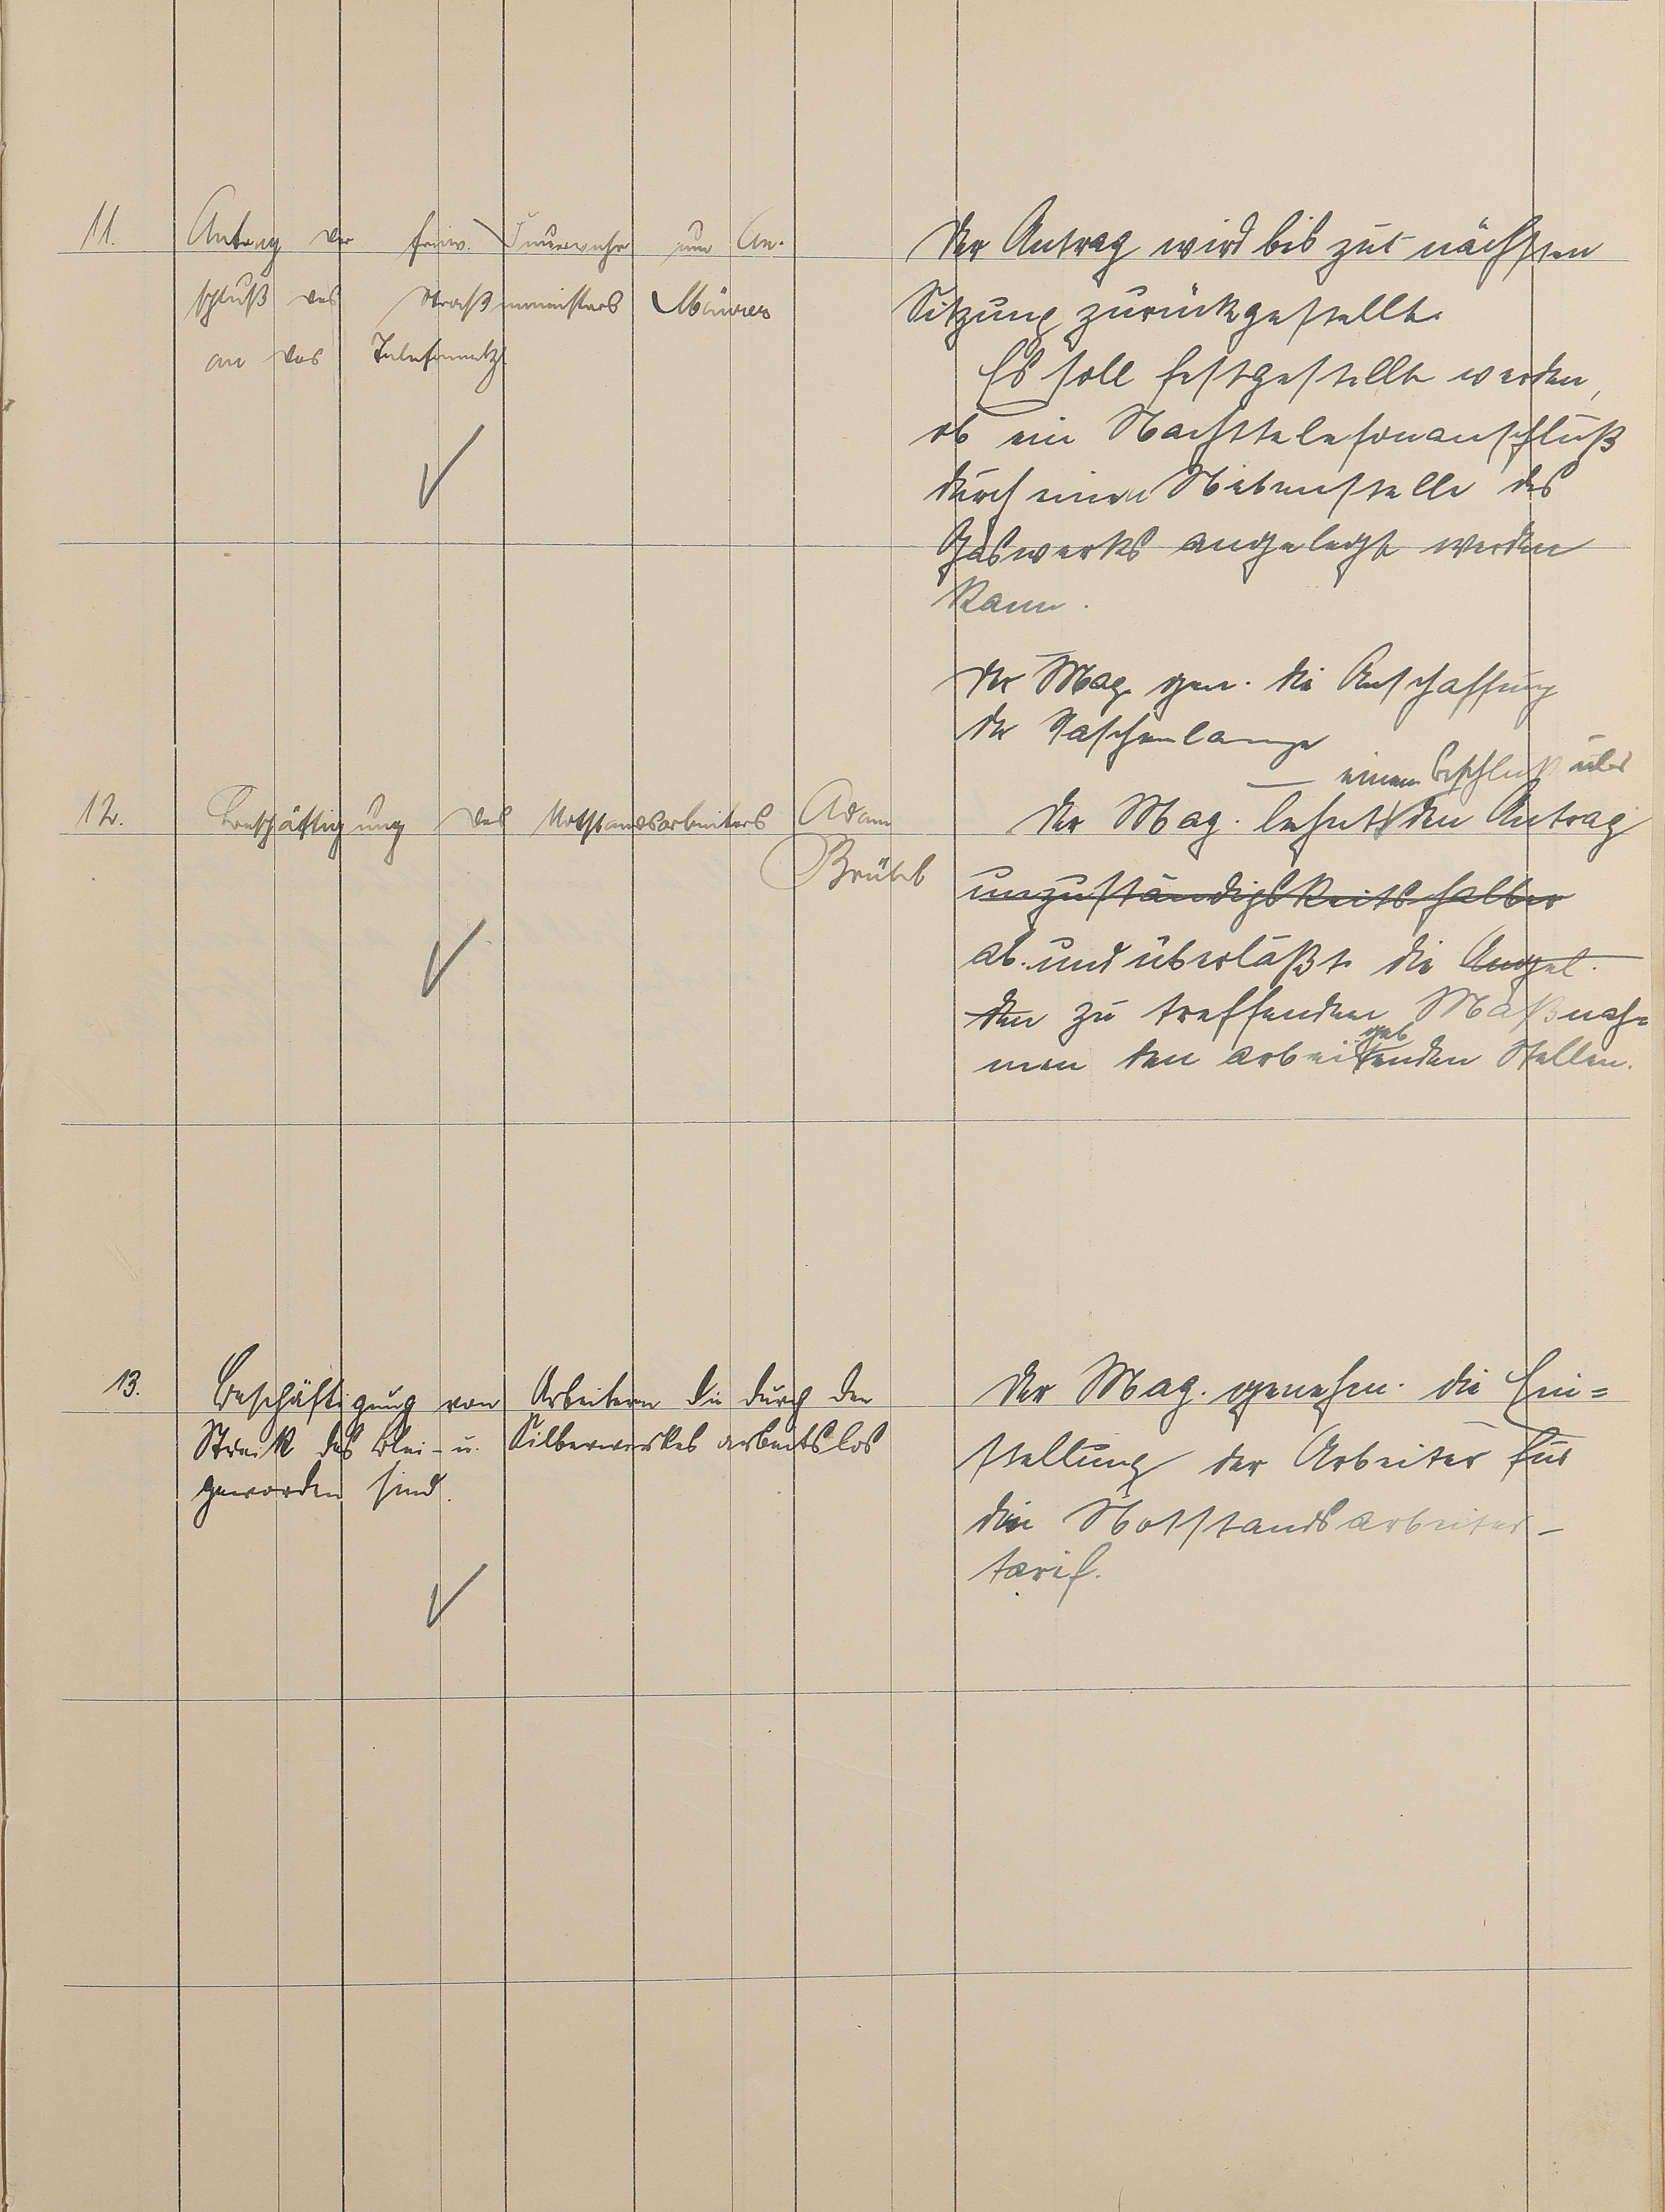 11.
Antrag der freiw. Feuerwehr um An-
schluß des Maurer
an das Telefonnetz.
Der Antrag wird bis zur nächsten
Sitzung zurückgestellt.
Es soll festgestellt werden,
ob ein Nachttelefonanschluß
durch einen Nebenstelle des
Gaswerks angelegt werden
kann.
Der Mag. gen. die Anschaffung
der
12.
Beschäftigung des Notstandsarbeiters Adam
Brübel
einen Beschluß über
Der Mag. lehnt den Antrag
unzuständigkeitshalber
ab. und überläßt die Angel.
den zu treffenden Maßnah=
geb
men den arbeitenden Stellen.
13.
Beschäftigung von Arbeitern die durch den
Streik des Blei- u. Silberwerkes arbeitslos
geworden sind.
Der Mag. genehm. die Ein=
stellung der Arbeiter für
den Notstandsarbeiter-
tarif.